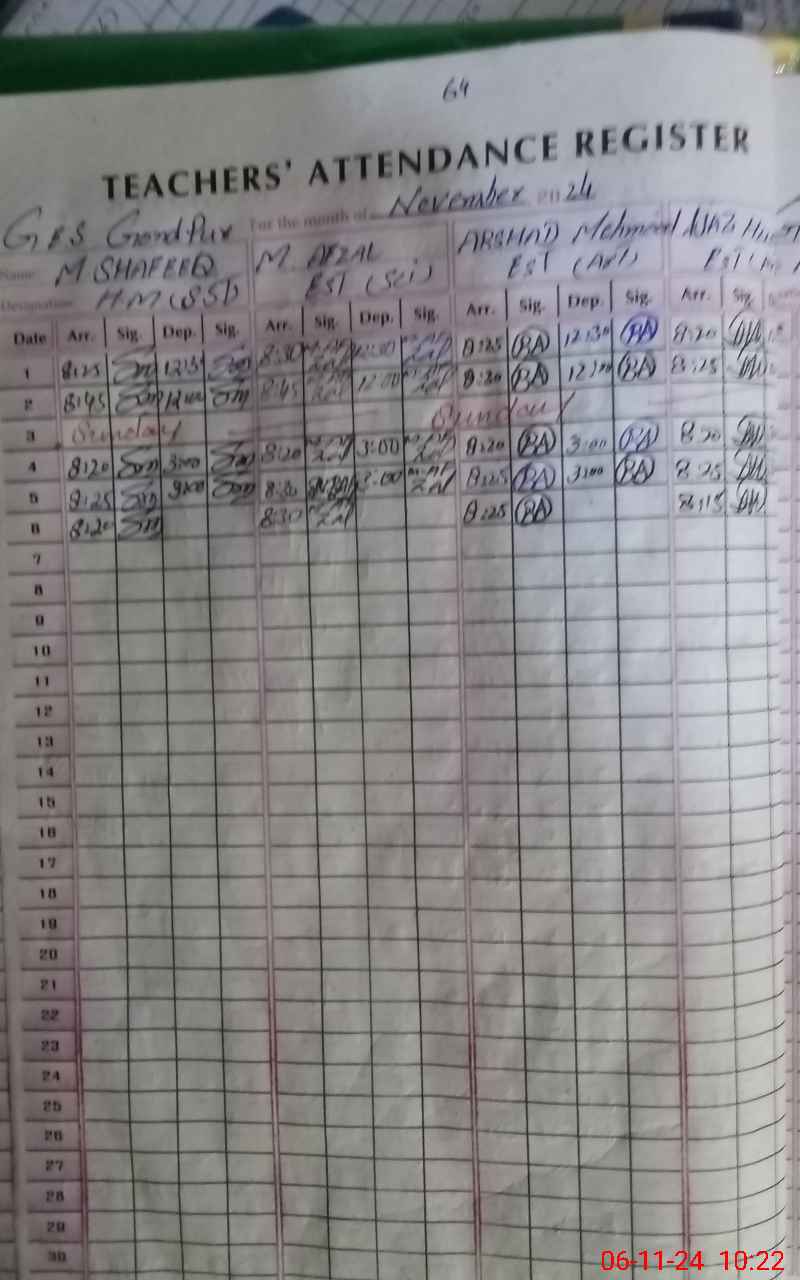 64
TEACHERS' ATTENDANCE REGISTER
For the month of November 2024
GES
Name M SHAFEEQ M. AFZAL ARSHAD Mehmood
Designation H.M (SST) EST (Sci) EST (Art) EST
Date Arr. Sig. Dep. Sig. Arr. Sig. Dep. Sig. Arr. Sig. Dep. Sig. Arr. Sig.
1 8:25 12:3 8:30 12:30 8:25 BA 12:30 BA 8:20
2 8:45 12:00 8:45 12:00 8:20 BA BA 8:25
3 Sunday Sunday
4 8:20 3:00 8:20 3:00 8:20 BA 3:00 BA 8:20
5 8:25 3:00 8:30 3:00 8:25 BA 3:00 BA 8:25
6 8:20 8:30 8:25 BA 8:15
7
8
9
10
11
12
13
14
15
16
17
18
19
20
21
22
23
24
25
26
27
28
29
30
06-11-24 10:22